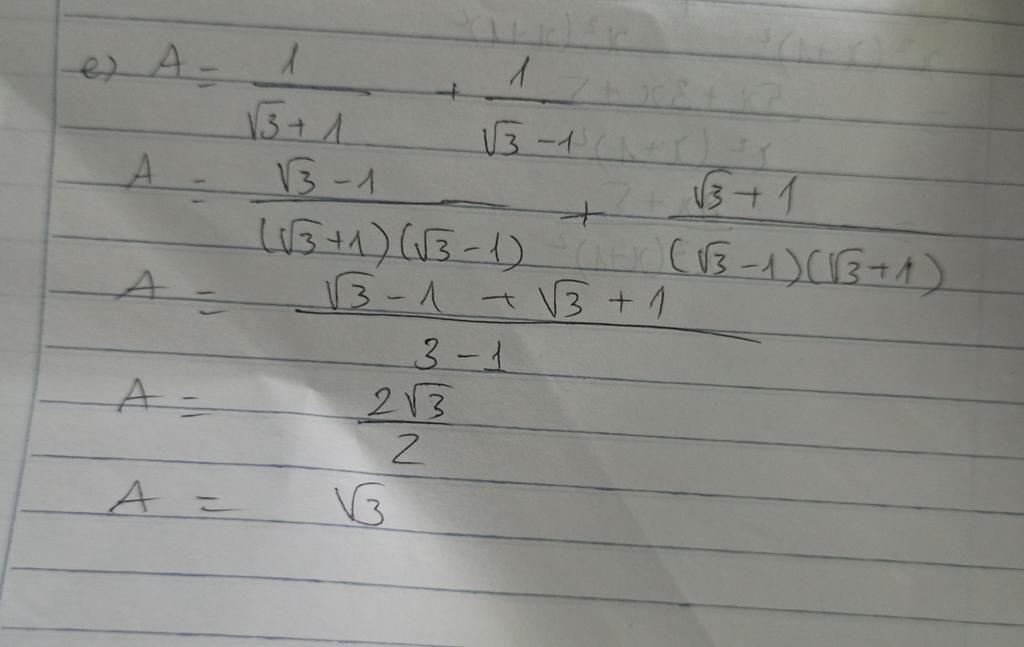 e) A = 1/(√3 + 1) + 1/(√3 - 1)
A = (√3 - 1)/((√3 + 1)(√3 - 1)) + (√3 + 1)/((√3 - 1)(√3 + 1))
A = (√3 - 1 + √3 + 1)/(3 - 1)
A = 2√3/2
A = √3